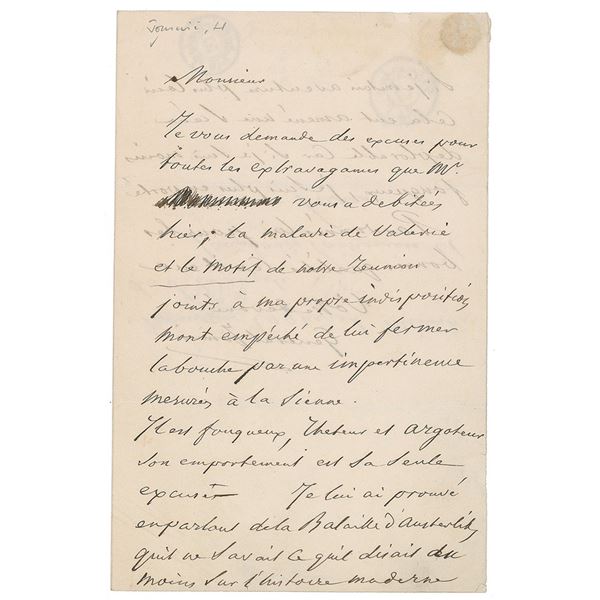 Monsieur
Je vous demande des excuses pour
toutes les extravagances que Mr.
vous a debitées
hier; la maladie de Valerie
et le motif de notre reunion
joints à ma propre indisposition
mont empêché de lui fermer
la bouche par une impertinence
mesurés à la sienne.
Il est fougueux, Rheteur et argoteur
son emportement est sa seule
excuse Je lui ai prouvé
en parlant de la Bataille d'Austerlitz
quil ne savait ce quil disait du
moins sur l'histoire moderne